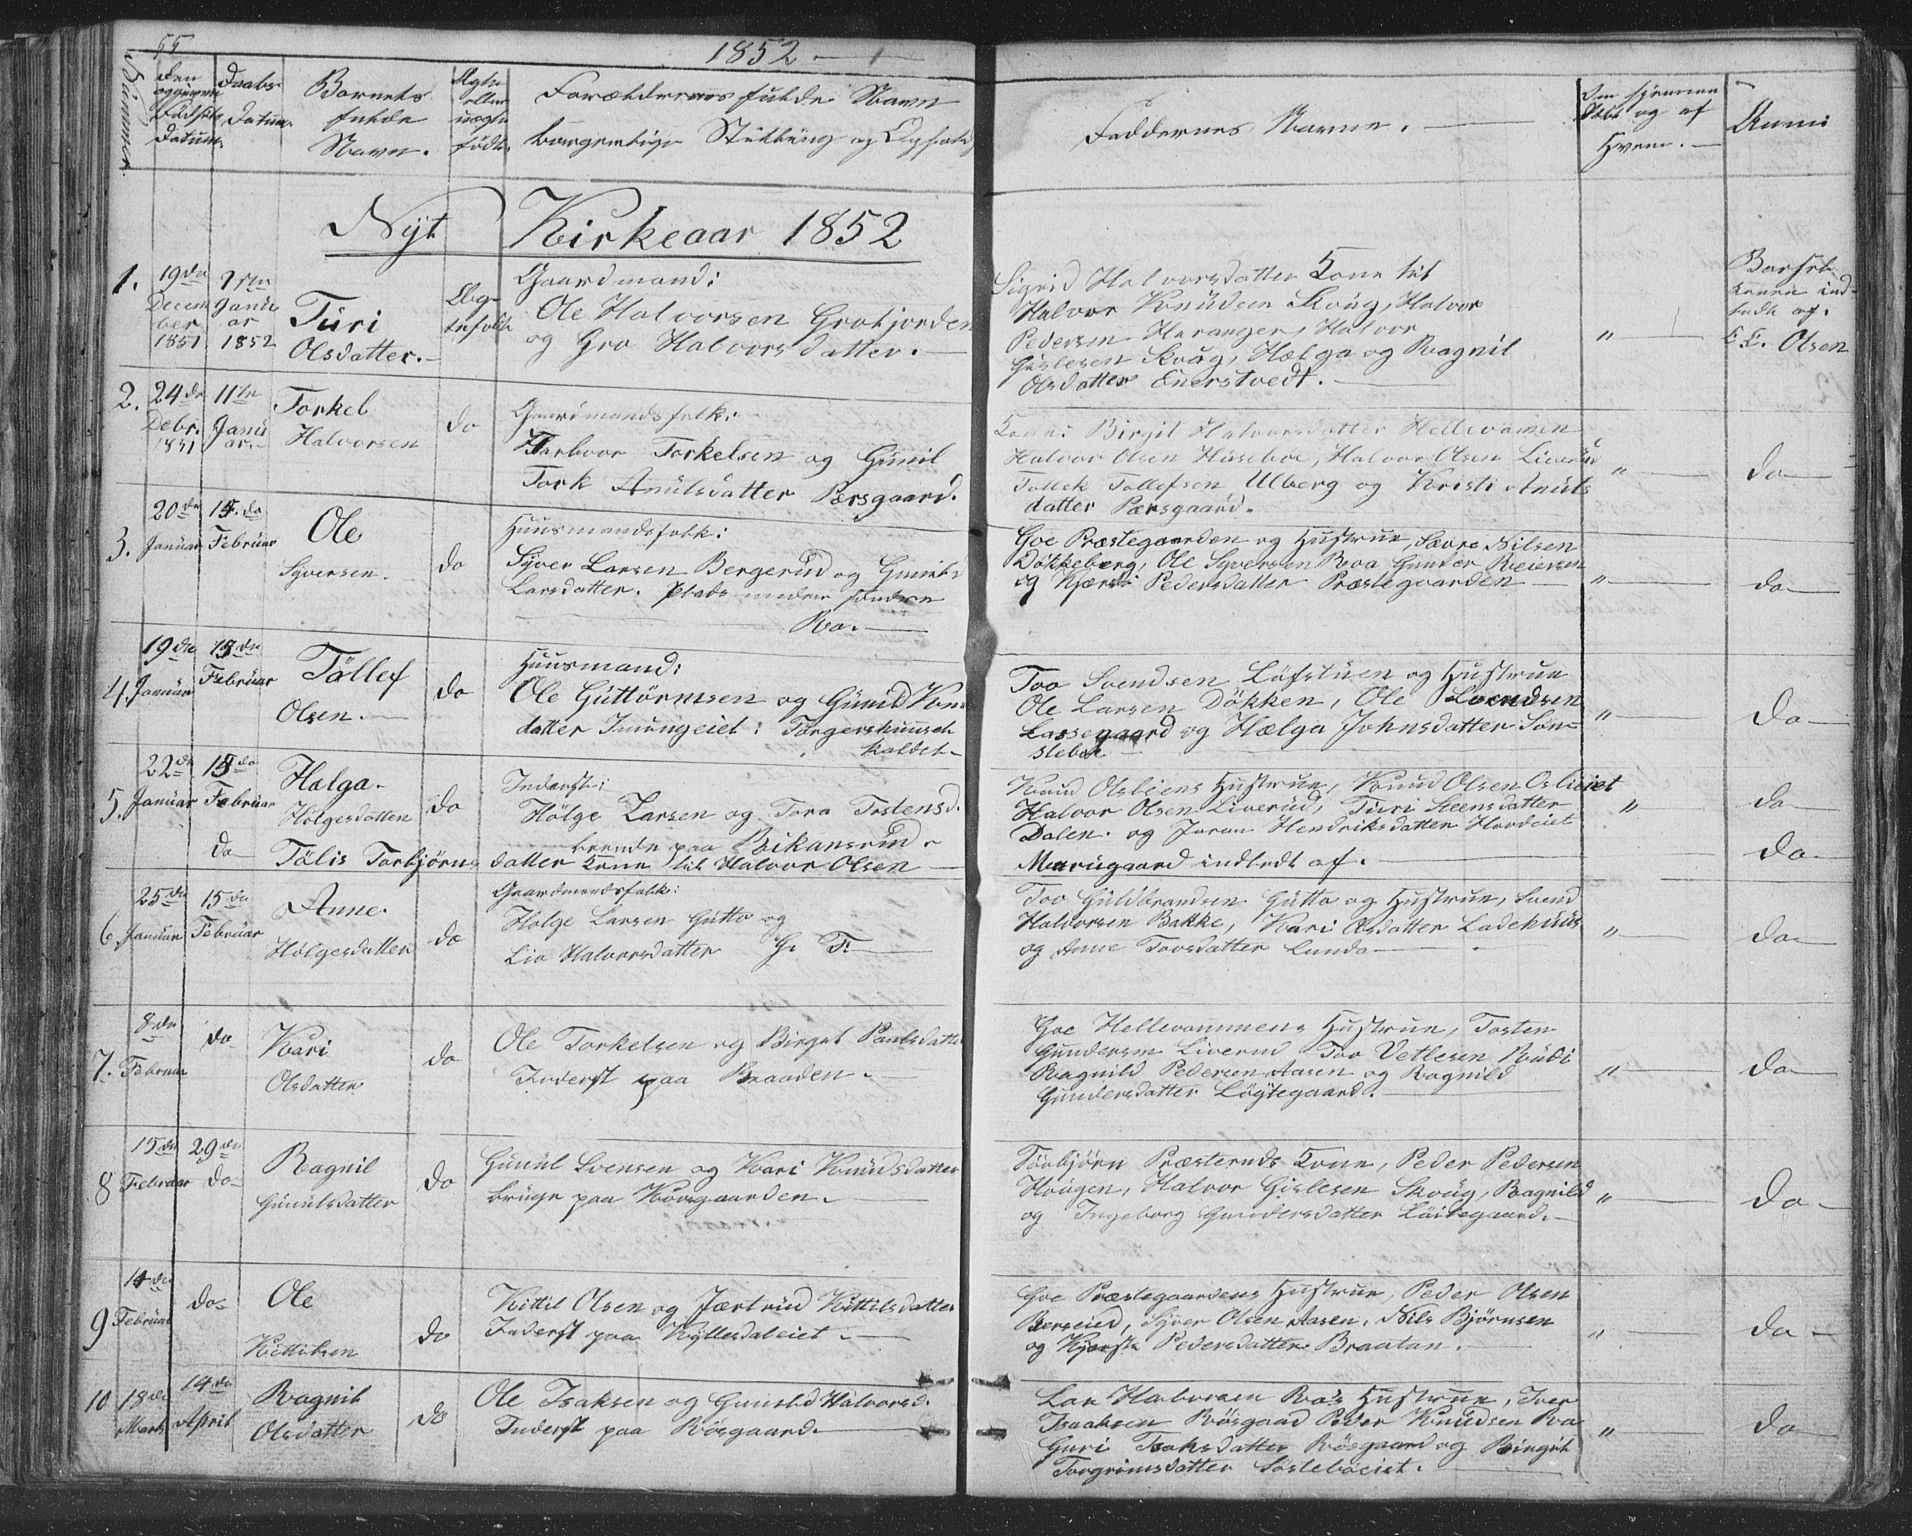 55
1852
Nummer
Den opgivne Födsels Datum
Daabs Datum
Barnets fulde Navn.
Ægte eller uægte födt.
Forældrenes fulde Navn borgerlige Stilling og Ophold
Faddernes Navne.
Om hjemme döbt og af Hvem.
Anm:
Nÿt Kirkeaar 1852
1.
19de December 1851
Januar 1852
Türi
Olsdatter.
Gaardmand:
Ole Halvorsen Grotjorden
og Gro Halvorsdatter.
Sigrid Halvorsdatter Kone til
Halvor Knudsen Skoug, Halvor
Pedersen Haranger, Halvor
Gislesen Skoug, Hælga og Ragnil
Olsdatter Enerstvedt.
"
Barsel
konen ind
ledt af.
E. E. Olsen
2.
24de Debr. 1851
11te Januar.
Torkel
Halvorsen
do
Gaardmandsfolk:
Halvor Torkelsen og Günil
Tork Anülsdatter Pærsgaard.
Kone: Birgit Halvorsdatter Hellevamen
Halvor Olsen Hüseboe, Halvor Olsen Liverüd
Tollek Tollefsen Ulberg og Kristi Anüls
datter Pærsgaard.
"
do
3.
20de Januar
15. do Februar
Ole
Syversen.
do
Huusmandsfolk:
Syver Larsen Bergerud og Gunild
Larsdatter. Plads under söndre
Roa.
Goe Præstegaarden og Hustrue, Sævre Nilsen
Dökkeberg, Ole Syversen Roa Gunder Reiersen
og Kjersti Pedersdatter Præstegaarden
"
do
4.
19de Januar
15de Februar
Töllef
Olsen.
do
Huusmand:
Ole Güttormsen og Günild
datter Imüngeiet: Torgersh
kaldet
Too Svendsen Löfstuen og Hustrue
Ole Larsen Dökken, Ole Svendsen
Lassegaard og Hælga Johnsdatter Söne
sleböe
"
do
5.
22de Januar
15de Februar
Hælga.
Hölgesdatter
do
Inderst:
Hölge Larsen og Tora Tostensd.
boende paa Bikansrud
Knud Olsliens Hustrue, Knud Olsen Oslieiet
Halvor Olsen Liverud, Türi Steensdatter
Dalen. og Joran Hendriksdatter Hovdeiet
"
do
do
Tölis Torbjörnsdatter Kone til Halvor Olsen
Morigaard indledt af.
do
6
25de Januar
15de Februar
Anne.
Hölgesdatter
do
Gaardmandsfolk:
Holge Larsen Gütto og
Liv Halvorsdatter G. T.
Too Güldbrandsen Gütto og Hustrue, Svend
Halvorsen Bakke, Kari Olsdatter Ladehuus
og Anne Toosdatter Lunda
"
do
7.
8de Februar
do
Kari
Olsdatter
do
Ole Torkelsen og Birget Paulsdatter
Inderst paa Braaden.
Goe Hellevammens Hustrue, Tosten
Gundersen Liverud Too Vetlesen Rüdi
Ragnild Pedersen Aasen og Ragnild
Gundersdatter Löytegaard.
"
do
8
15de Februar
29de do
Ragnil
Günülsdatter
do
Günül Svensen og Kari Knüdsdatter
bruger paa Roesgaarden.
Torbjörn Præsteruds Kone, Peder Pedersen
Hougen, Halvor Gislesen Skoüg, Ragnild
og Ingeborg Gundersdatter Löitegaard.
"
do
9
Februar
do
Ole
Kittilsen
do
Kittil Olsen og Jærtrüd Kittilsdatter
Inderst paa Kyllesdaleiet.
Goe Præstegaardens Hustrue, Peder Olsen
Berseiid, Syver Olsen Aasen, Nils Björnsen
og Kjersti Pedersdatter Braatan.
"
do
10
18de Marts
14de April
Ragnil
Olsdatter
do
Ole Isaksen og Gunild Halvorsd.
Inderst paa Rösgaard.
Lar Halvorsen Roe's Hustrue, Iver
Isaaksen Rösgaard Peder Knudsen Roa
Guri Isaksdatter Rösgaard og Bingit
Torgrimsdatter Sösleböeiet.
"
do